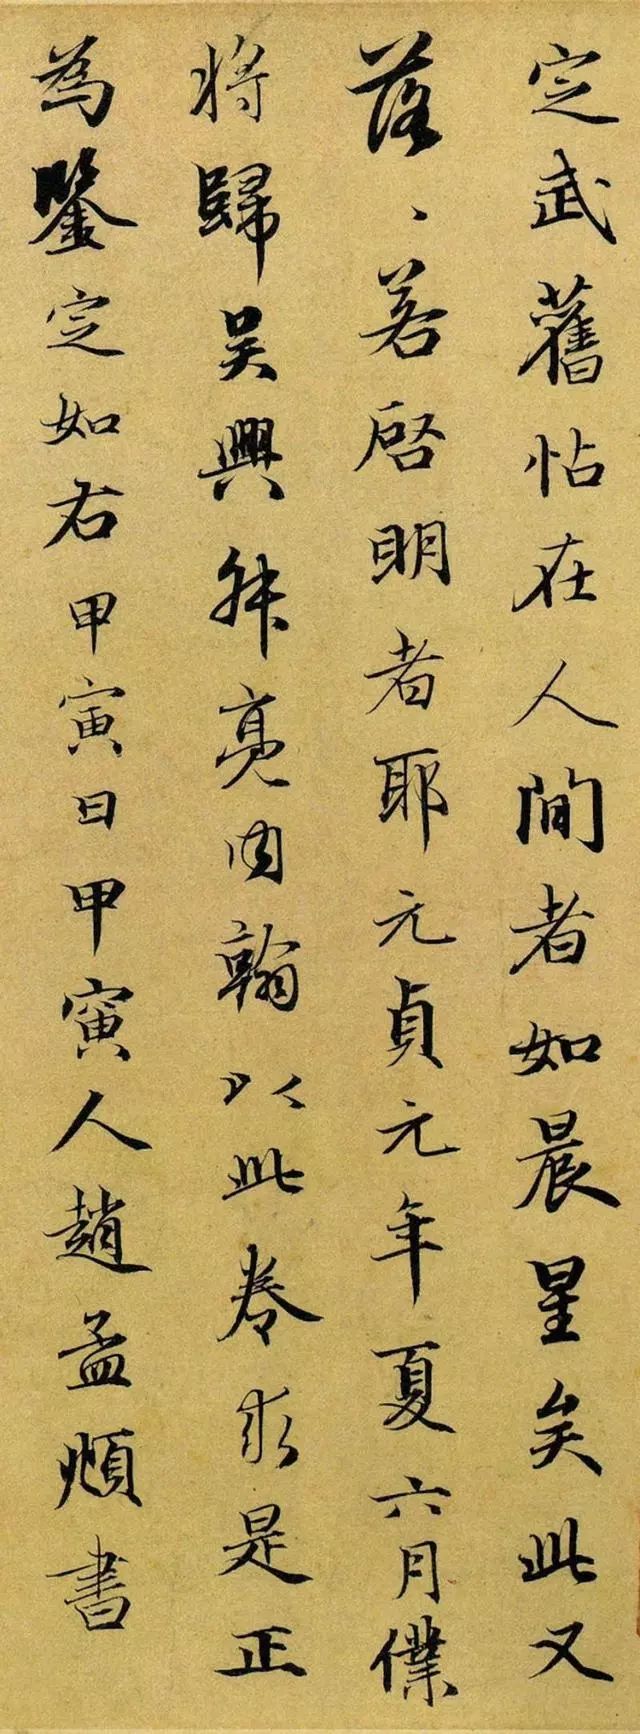 定武舊帖在人間者如晨星矣此又
落、若啓明者耶元貞元年夏六月僕
將歸吴興叔亮内翰以此卷求是正
為鑒定如右甲寅日甲寅人趙孟頫書